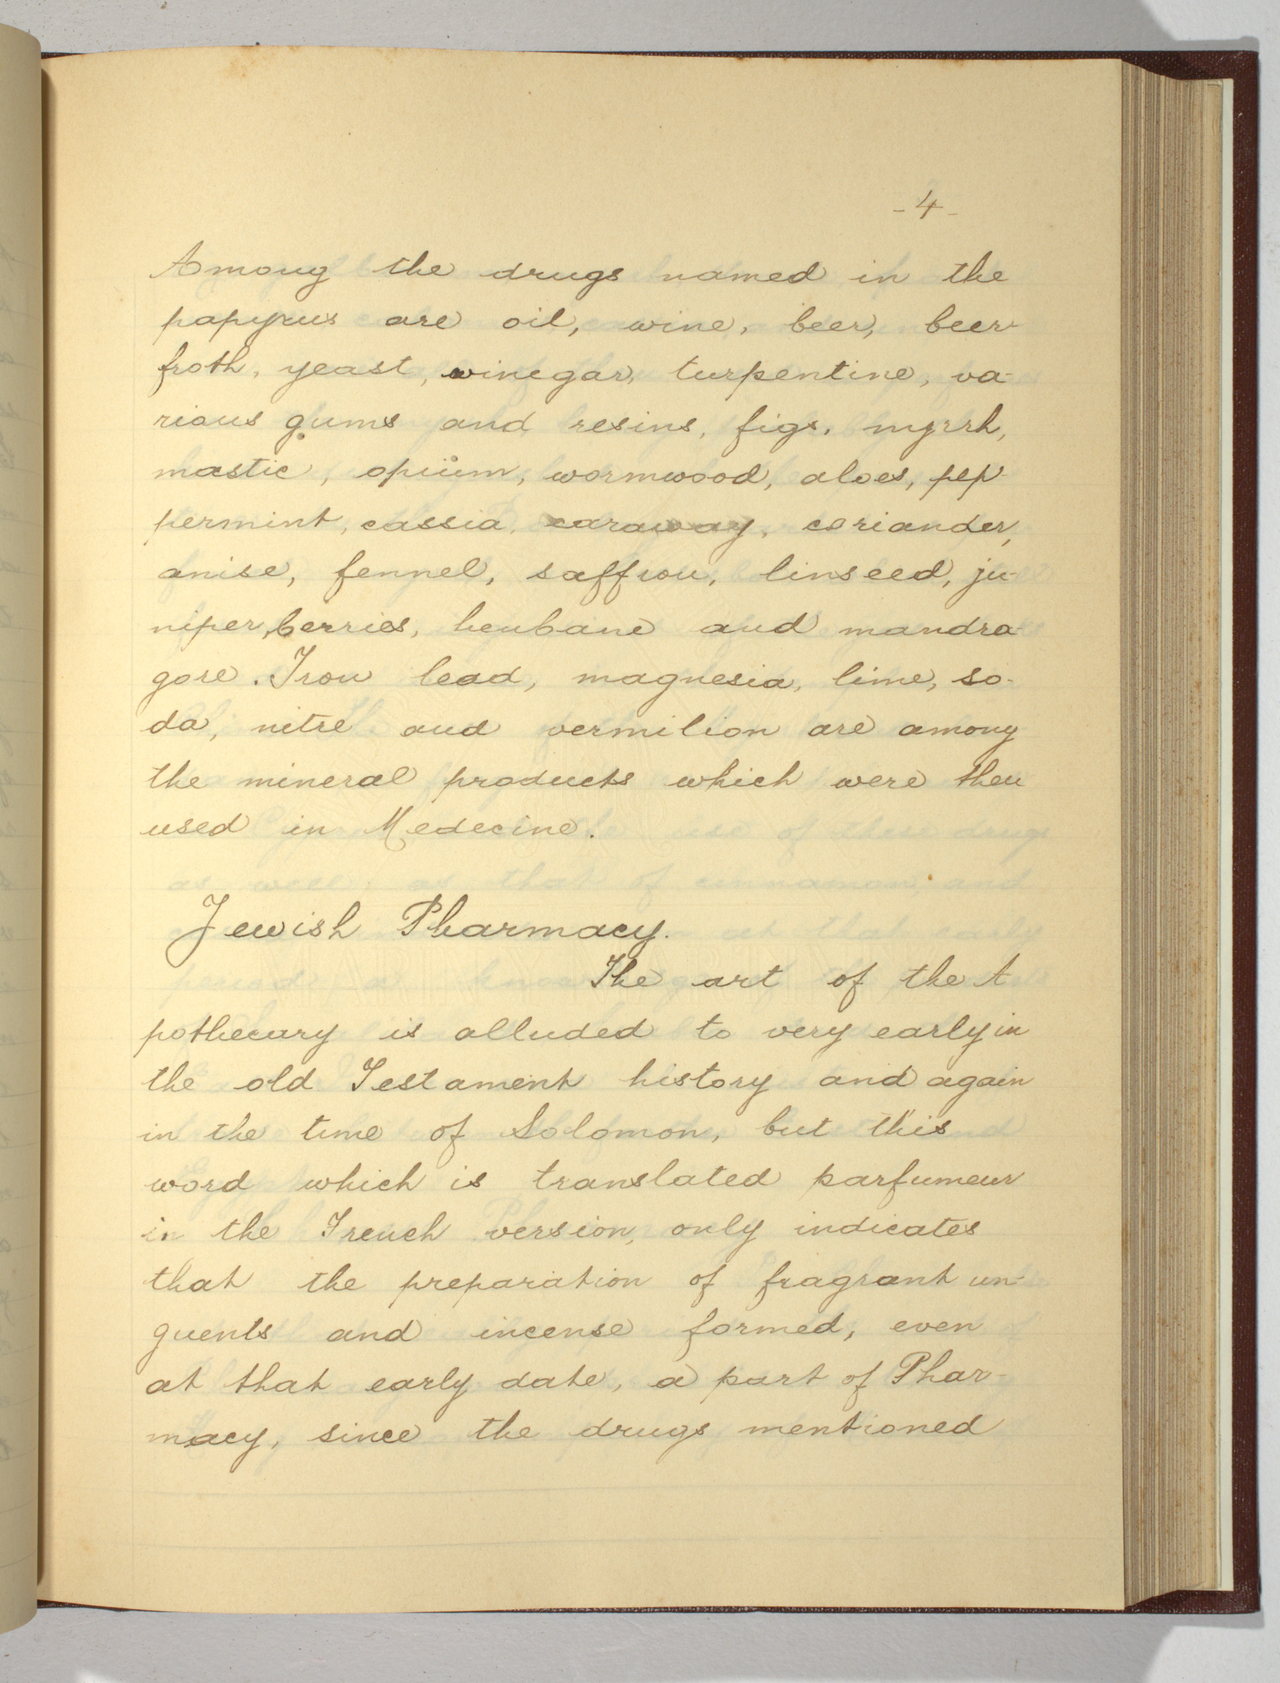 -4-
Among the drugs named in the
papyrus are oil, wine, beer, beer-
froth, yeast, vinegar, turpentine, va-
rious gums and resins, figs, myrrh,
mastic, opium, wormwood, aloes, pep-
permint, cassia, caraway, coriander,
anise, fennel, saffron, linseed, ju-
niper, berries, henbane and mandra-
gore. Iron lead, magnesia, lime, so-
da, nitre and vermilion are among
the mineral products which were then
used in Medecine.
Jewish Pharmacy.
The art of the A
pothecary is alluded to very early in
the old Testament history and again
in the time of Solomon, but this
word which is translated parfumeur
in the French version, only indicates
that the preparation of fragrant un-
guents and incense formed, even
at that early date, a part of Phar-
macy, since the drugs mentioned